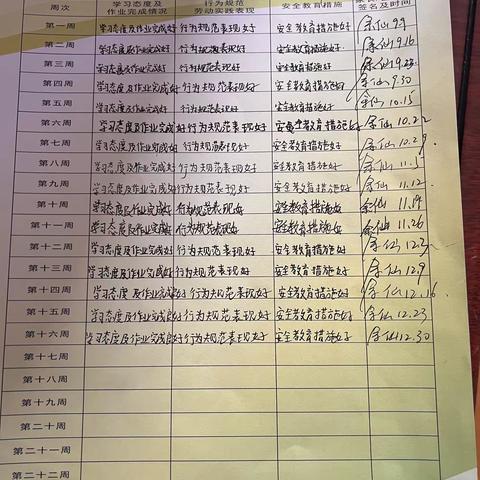 周次 学习态度及作业完成情况 行为规范劳动实践表现 安全教育措施 签名及时间
第一周 学习态度及作业完成好 行为规范表现好 安全教育措施好 余仙 9.9
第二周 学习态度及作业完成好 行为规范表现好 安全教育措施好 余仙 9.16
第三周 学习态度及作业完成好 行为规范表现好 安全教育措施好 余仙 9.23
第四周 学习态度及作业完成好 行为规范表现好 安全教育措施好 余仙 9.30
第五周 学习态度及作业完成好 行为规范表现好 安全教育措施好 余仙 10.15
第六周 学习态度及作业完成好 行为规范表现好 安全教育措施好 余仙 10.22
第七周 学习态度及作业完成好 行为规范表现好 安全教育措施好 余仙 10.29
第八周 学习态度及作业完成好 行为规范表现好 安全教育措施好 余仙 11.5
第九周 学习态度及作业完成好 行为规范表现好 安全教育措施好 余仙 11.12
第十周 学习态度及作业完成好 行为规范表现好 安全教育措施好 余仙 11.19
第十一周 学习态度及作业完成好 行为规范表现好 安全教育措施好 余仙 11.26
第十二周 学习态度及作业完成好 行为规范表现好 安全教育措施好 余仙 12.3
第十三周 学习态度及作业完成好 行为规范表现好 安全教育措施好 余仙 12.9
第十四周 学习态度及作业完成好 行为规范表现好 安全教育措施好 余仙 12.16
第十五周 学习态度及作业完成好 行为规范表现好 安全教育措施好 余仙 12.23
第十六周 学习态度及作业完成好 行为规范表现好 安全教育措施好 余仙 12.30
第十七周
第十八周
第十九周
第二十周
第二十一周
第二十二周